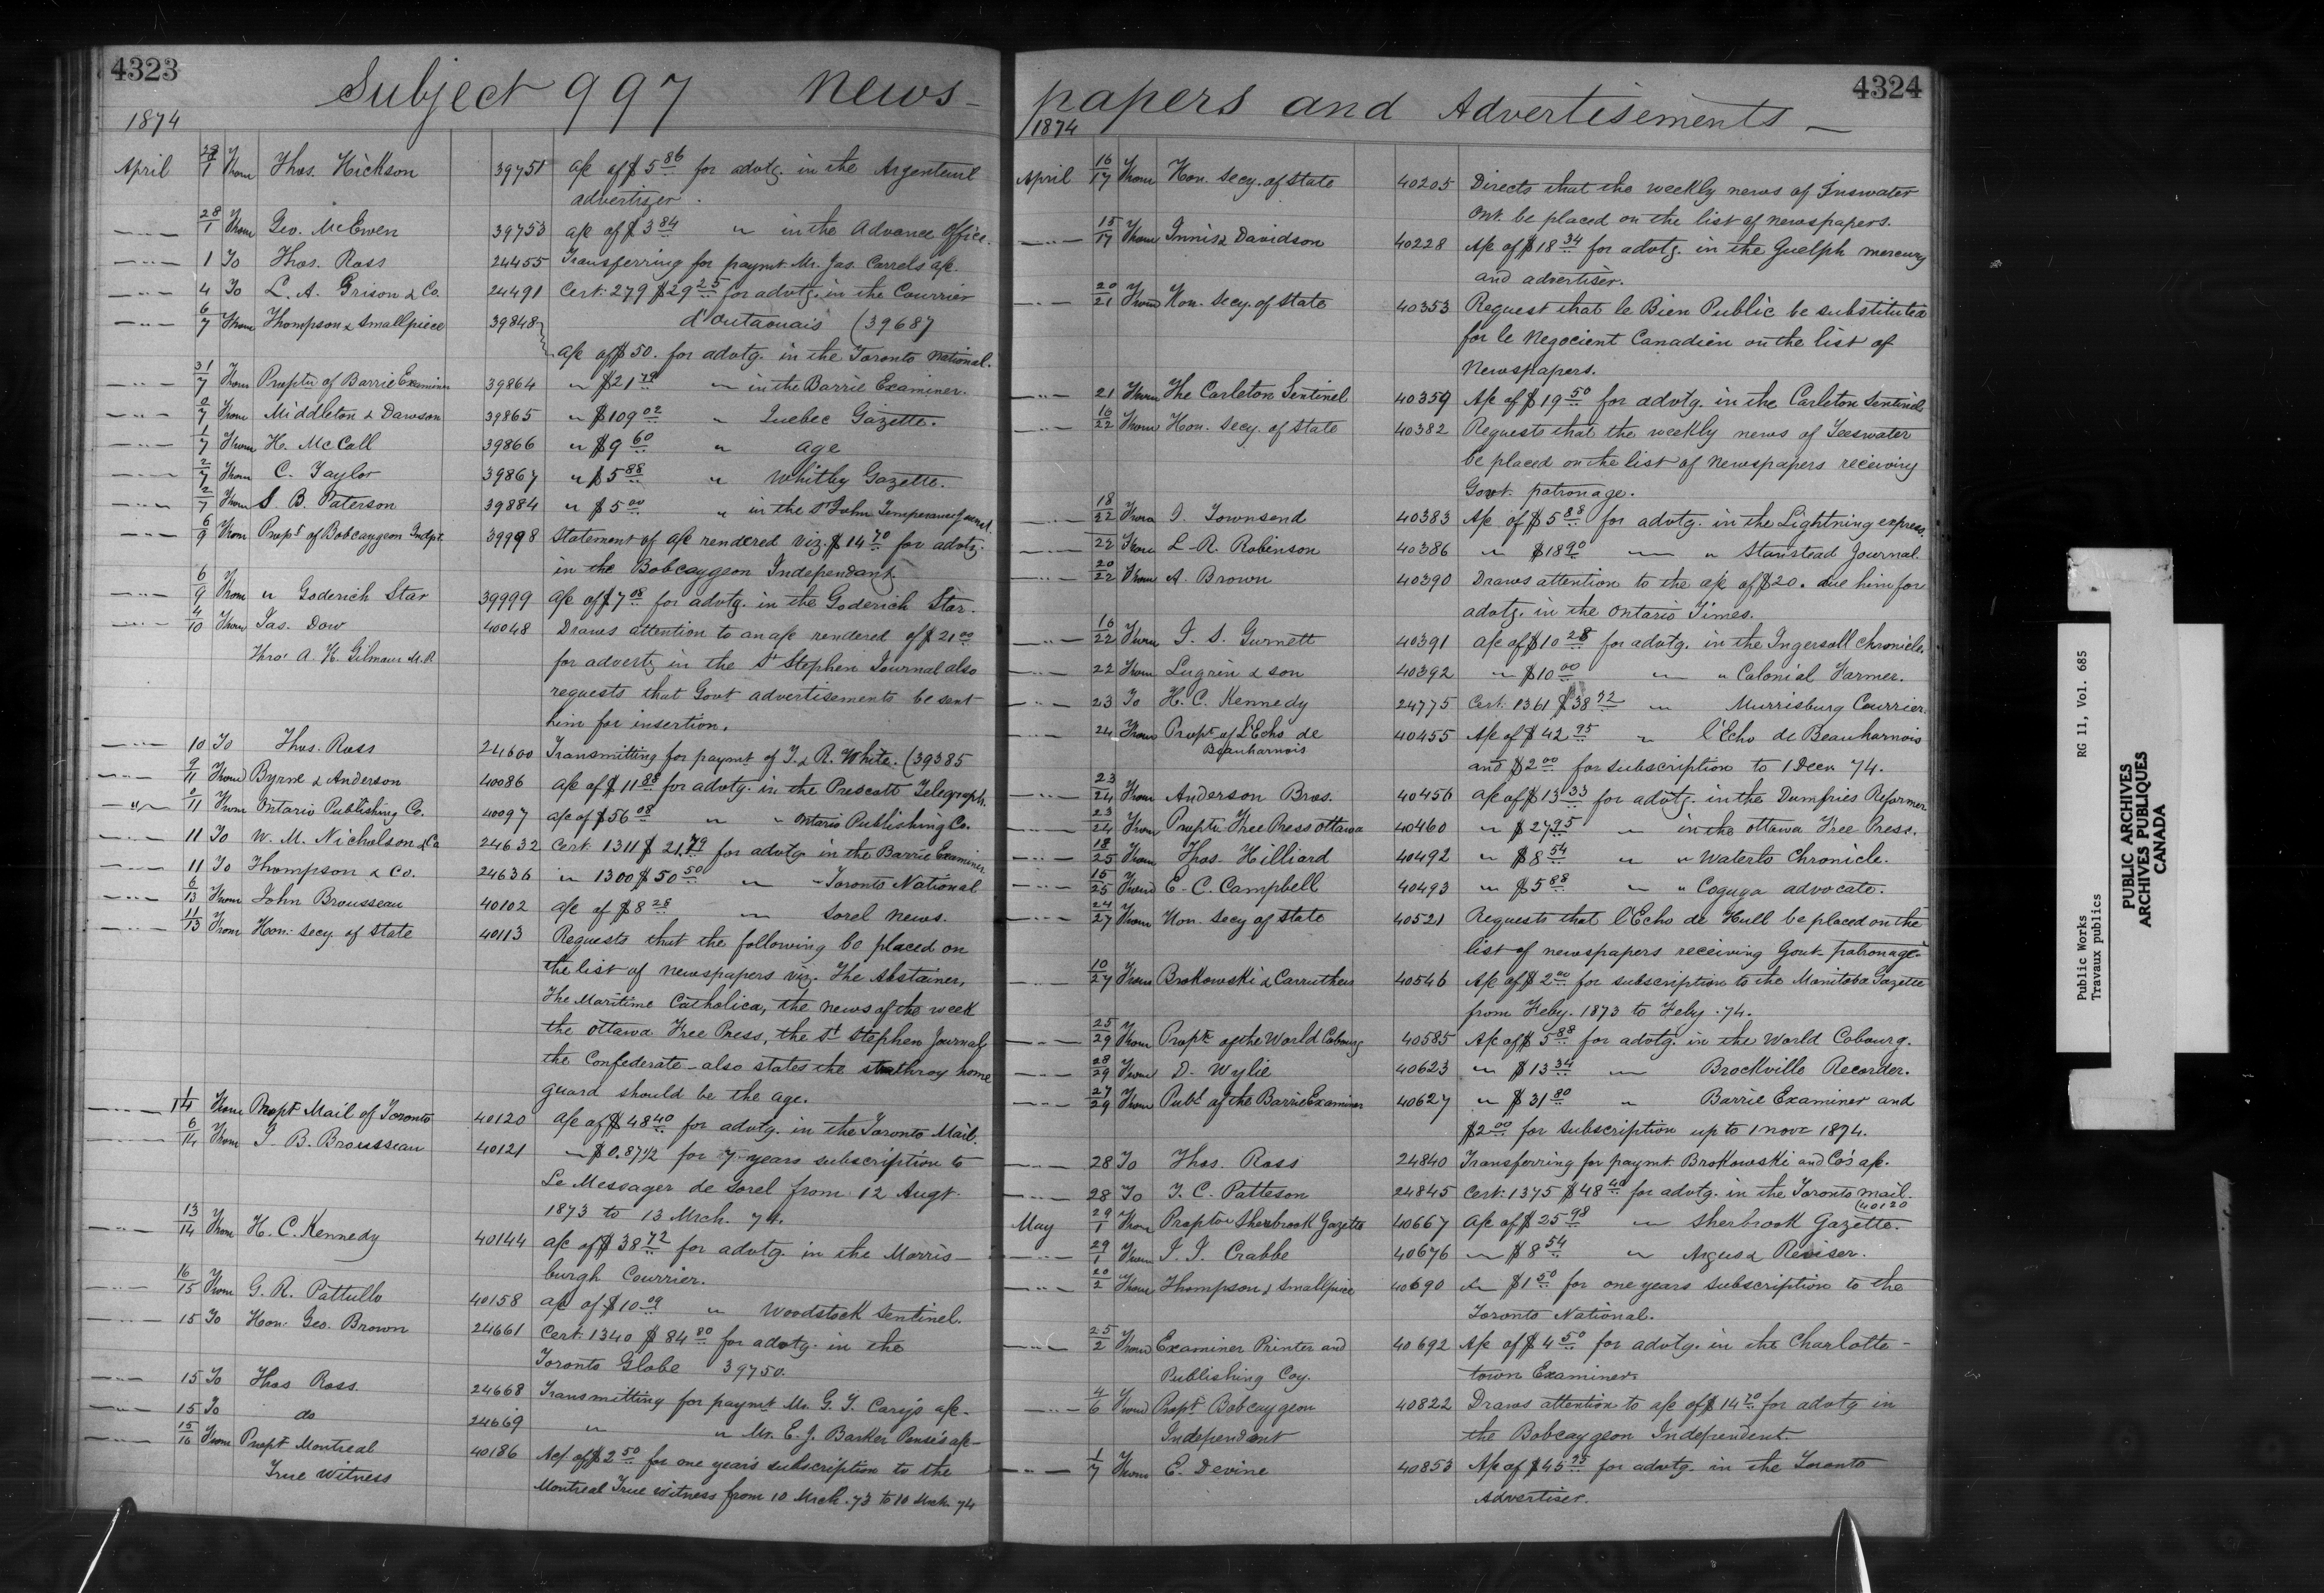 4323
Subject 997 News-
1874
April 29/1 From Thos. Hickson 39751 a/c of $5.86 for advtg. in the Argenteuil
advertizer.
—"— 28/1 From Geo. McEwen 39753 a/c of $3.84 " in the Advance Office.
—"— 1 To Thos. Ross 24455 Transferring for paymt. Mr. Jas. Carrels a/c.
—"— 4 To L. A. Grison & Co. 24491 Cert. 279 $29.25 for advtg. in the Courrier
—"— 6/7 From Thompson & Smallpiece 39848 d'Outaouais (39687
a/c of $50. for advtg. in the Toronto National.
—"— 31/7 From Proptr of Barrie Examiner 39864 " $21.79 " in the Barrie Examiner.
—"— 7 From Middleton & Dawson 39865 " $109.02 " Quebec Gazette.
—"— 1/7 From H. McCall 39866 " $9.60 " age
—"— 2/7 From C. Taylor 39867 " $5.88 " Whitby Gazette.
—"— 2/7 From S B. Paterson 39884 " $5.00 " in the St John Temperance Journal
—"— 6/9 From Propt of Bobcaygeon Indpt. 39998 Statement of a/c rendered viz. $14.70 for advtg.
in the Bobcaygeon Independant.
—"— 6/9 From " Goderich Star 39999 a/c of $7.08 for advtg. in the Goderich Star.
—"— 4/10 From Jas. Dow 40048 Draws attention to an a/c rendered of $21.00
Thro' A. H. Gilmour M.P. for advertg in the St Stephen Journal also
requests that Govt advertisements be sent
him for insertion.
—"— 10 To Thos. Ross 24600 Transmitting for paymt of J. & R. White. (39385
—"— 9/11 From Byrne & Anderson 40086 a/c of $11.88 for advtg. in the Prescott Telegraph.
—"— 11 From Ontario Publishing Co. 40097 a/c of $56.08 " " Ontario Publishing Co.
—"— 11 To W. M. Nicholson & Co 24632 Cert. 1311 $21.79 for advtg. in the Barrie Examiner
—"— 11 To Thompson & Co. 24636 " 1300 $50.50 " " Toronto National
—"— 6/13 From John Brousseau 40102 a/c of $8.28 " Sorel News.
—"— 11/13 From Hon. Secy. of State 40113 Requests that the following be placed on
the list of newspapers viz. The Abstainer,
The Maritime Catholica, the news of the week
the Ottawa Free Press, the St Stephen Journal,
the Confederate - also states the Strathroy home
guard should be the age.
—"— 14 From Propt Mail of Toronto 40120 a/c of $48.40 for advtg. in the Toronto Mail.
—"— 6/14 From J. B. Brousseau 40121 " $0.87½ for 7 years subscription to
Le Messager de Sorel from 12 Augt.
1873 to 13 Mrch. 74.
—"— 13/14 From H. C. Kennedy 40144 a/c of $38.72 for advtg. in the Morris-
burgh Courrier.
—"— 16/15 From G. R. Pattullo 40158 a/c of $10.09 " Woodstock Sentinel.
—"— 15 To Hon. Geo. Brown 24661 Cert. 1340 $84.80 for advtg. in the
Toronto Globe 39750.
—"— 15 To Thos Ross 24668 Transmitting for paymt. Mr. G. T. Cary's a/c.
—"— 15 To do 24669 " " Mr. E. J. Barker Pense's a/c-
—"— 15/16 From Propt Montreal 40186 Ac/ of $2.50 for one year's subscription to the
True Witness Montreal True Witness from 10 Mrch. 73 to 10 Mrch. 74
4324
papers and Advertisements —
1874
April 16/17 From Hon. Secy. of State 40205 Directs that the weekly news of Inswater
Ont. be placed on the list of newspapers.
—"— 15/17 From Innis & Davidson 40228 A/c of $18.34 for advtg. in the Guelph mercury
and advertiser.
—"— 20/21 From Hon. Secy. of State 40353 Request that le Bien Public be substituted
for le Negocient Canadien on the list of
Newspapers.
—"— 21 From The Carleton Sentinel 40359 A/c of $19.50 for advtg. in the Carleton Sentinel
—"— 16/22 From Hon. Secy. of State 40382 Requests that the weekly news of Teeswater
be placed on the list of Newspapers receiving
Govt. patronage.
—"— 18/22 From J. Townsend 40383 A/c of $5.88 for advtg. in the Lightning express.
—"— 22 From L. R. Robinson 40386 " $18.90 " " Stanstead Journal
—"— 20/22 From A. Brown 40390 Draws attention to the a/c of $20. due him for
advtg. in the Ontario Times.
—"— 16/22 From J. S. Gurnett 40391 a/c of $10.28 for advtg. in the Ingersoll Chronicle.
—"— 22 From Lugrin & son 40392 " $10.00 " " Colonial Farmer.
—"— 23 To H. C. Kennedy 24775 Cert. 1361 $38.72 " Murrisburg Courrier.
—"— 24 From Propt of L'Echo de 40455 A/c of $42.95 " l'Echo de Beauharnois
Beauharnois and $2.00 for subscription to 1 Decr 74.
—"— 23/24 From Anderson Bros. 40456 a/c of $13.33 for advtg. in the Dumfries Reformer
—"— 23/24 From Proptr Free Press Ottawa 40460 " $27.95 " in the Ottawa Free Press.
—"— 18/25 From Thos. Hilliard 40492 " $8.54 " " Waterlo Chronicle.
—"— 15/25 From E. C. Campbell 40493 " $5.88 " " Coguga advocate.
—"— 24/27 From Hon. Secy of State 40521 Requests that l'Echo de Hull be placed on the
list of newspapers receiving Govt. patronage.
—"— 10/27 From Brokowski & Carruthers 40546 A/c of $2.00 for subscription to the Manitoba Gazette
from Feby. 1873 to Feby. 74.
—"— 25/29 From Proptr of the World Cobourg 40585 A/c of $5.88 for advtg. in the World Cobourg.
—"— 28/29 From D. Wylie 40623 " $13.34 " Brockville Recorder.
—"— 27/29 From Publ of the Barrie Examiner 40627 " $31.80 " Barrie Examiner and
$2.00 for subscription up to 1 Novr 1874.
—"— 28 To Thos. Ross 24840 Transferring for paymt. Brokowski and Co's a/c.
—"— 28 To T. C. Patteson 24845 Cert. 1375 $48.40 for advtg. in the Toronto Mail.
(40120
May 29/1 From Proptor Sherbrook Gazette 40667 a/c of $25.98 " Sherbrook Gazette.
—"— 29/1 From J. J. Crabbe 40676 " $8.54 " Argus & Reviser.
—"— 20/2 From Thompson & Smallpiece 40690 " $1.50 for one years subscription to the
Toronto National.
—"— 25/2 From Examiner Printer and 40692 A/c of $4.50 for advtg. in the Charlotte-
Publishing Coy. town Examiner.
—"— 4/6 From Propt Bobcaygeon 40822 Draws attention to a/c of $14.70 for advtg in
Independant the Bobcaygeon Independent
—"— 1/7 From E. Devine 40853 A/c of $45.95 for advtg. in the Toronto
Advertiser.
Public Works RG 11, Vol. 685
Travaux publics
PUBLIC ARCHIVES
ARCHIVES PUBLIQUES
CANADA